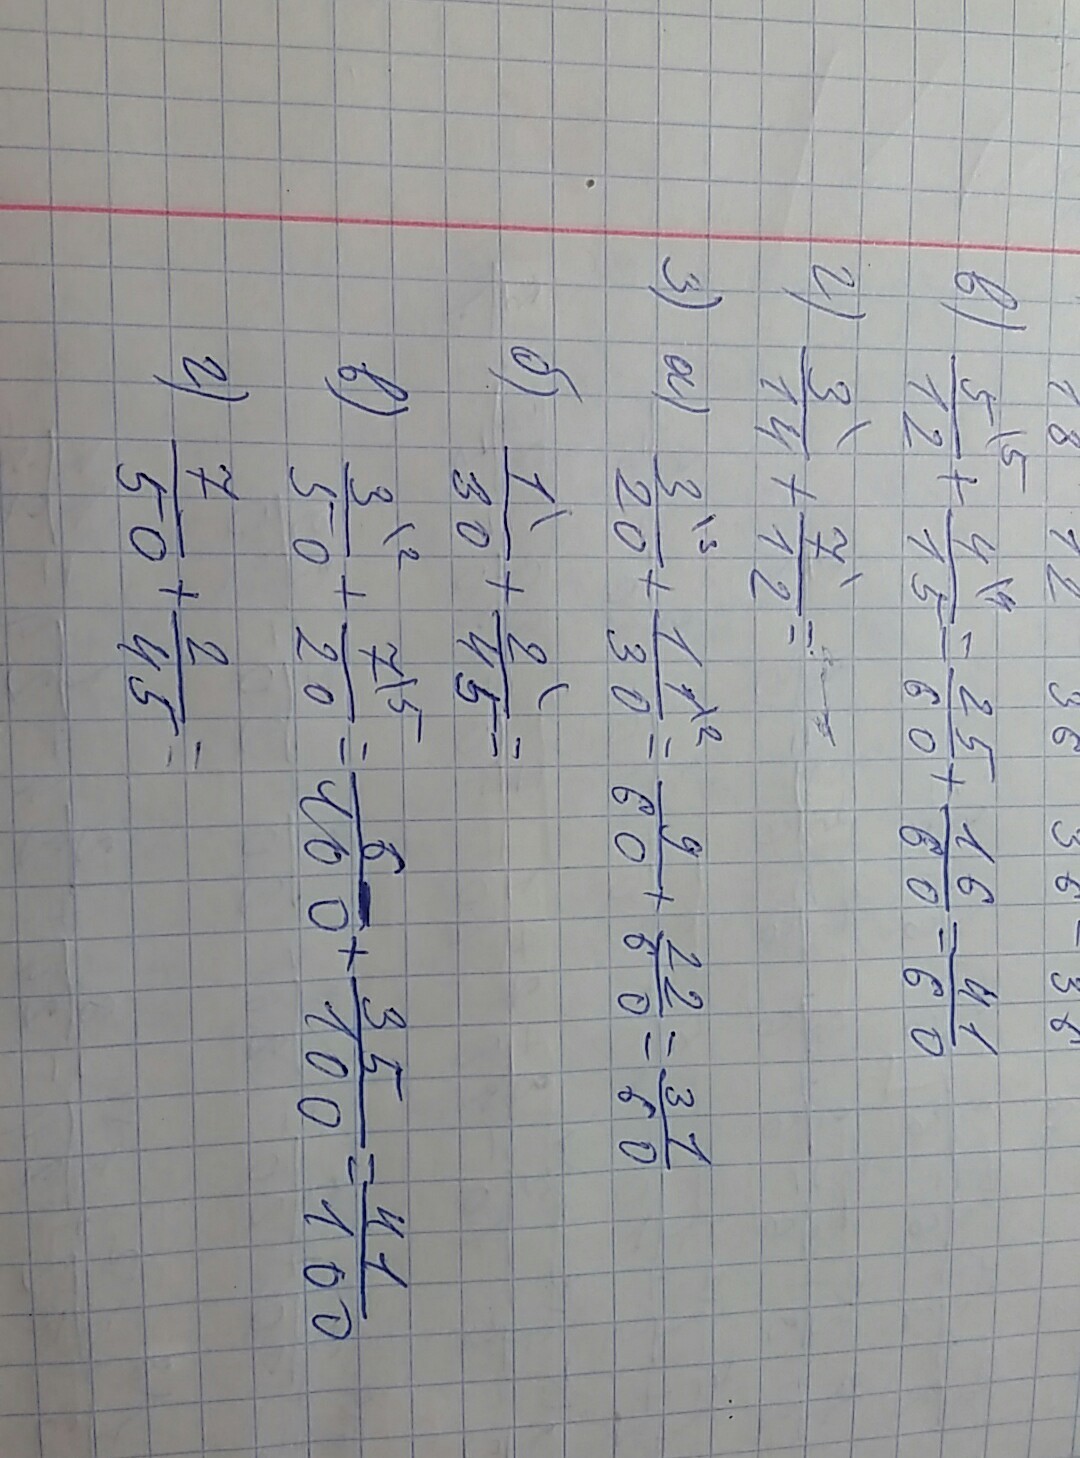 18 12 36 36 = 36
в) 5\5/12 + 4\4/15 = 25/60 + 16/60 = 41/60
г) 3\/14 + 7\/12 =
3) а) 3\3/20 + 11\2/30 = 9/60 + 22/60 = 31/60
б) 1\/30 + 2\/45 =
в) 3\2/50 + 7\5/20 = 6/100 + 35/100 = 41/100
г) 7/50 + 2/45 =